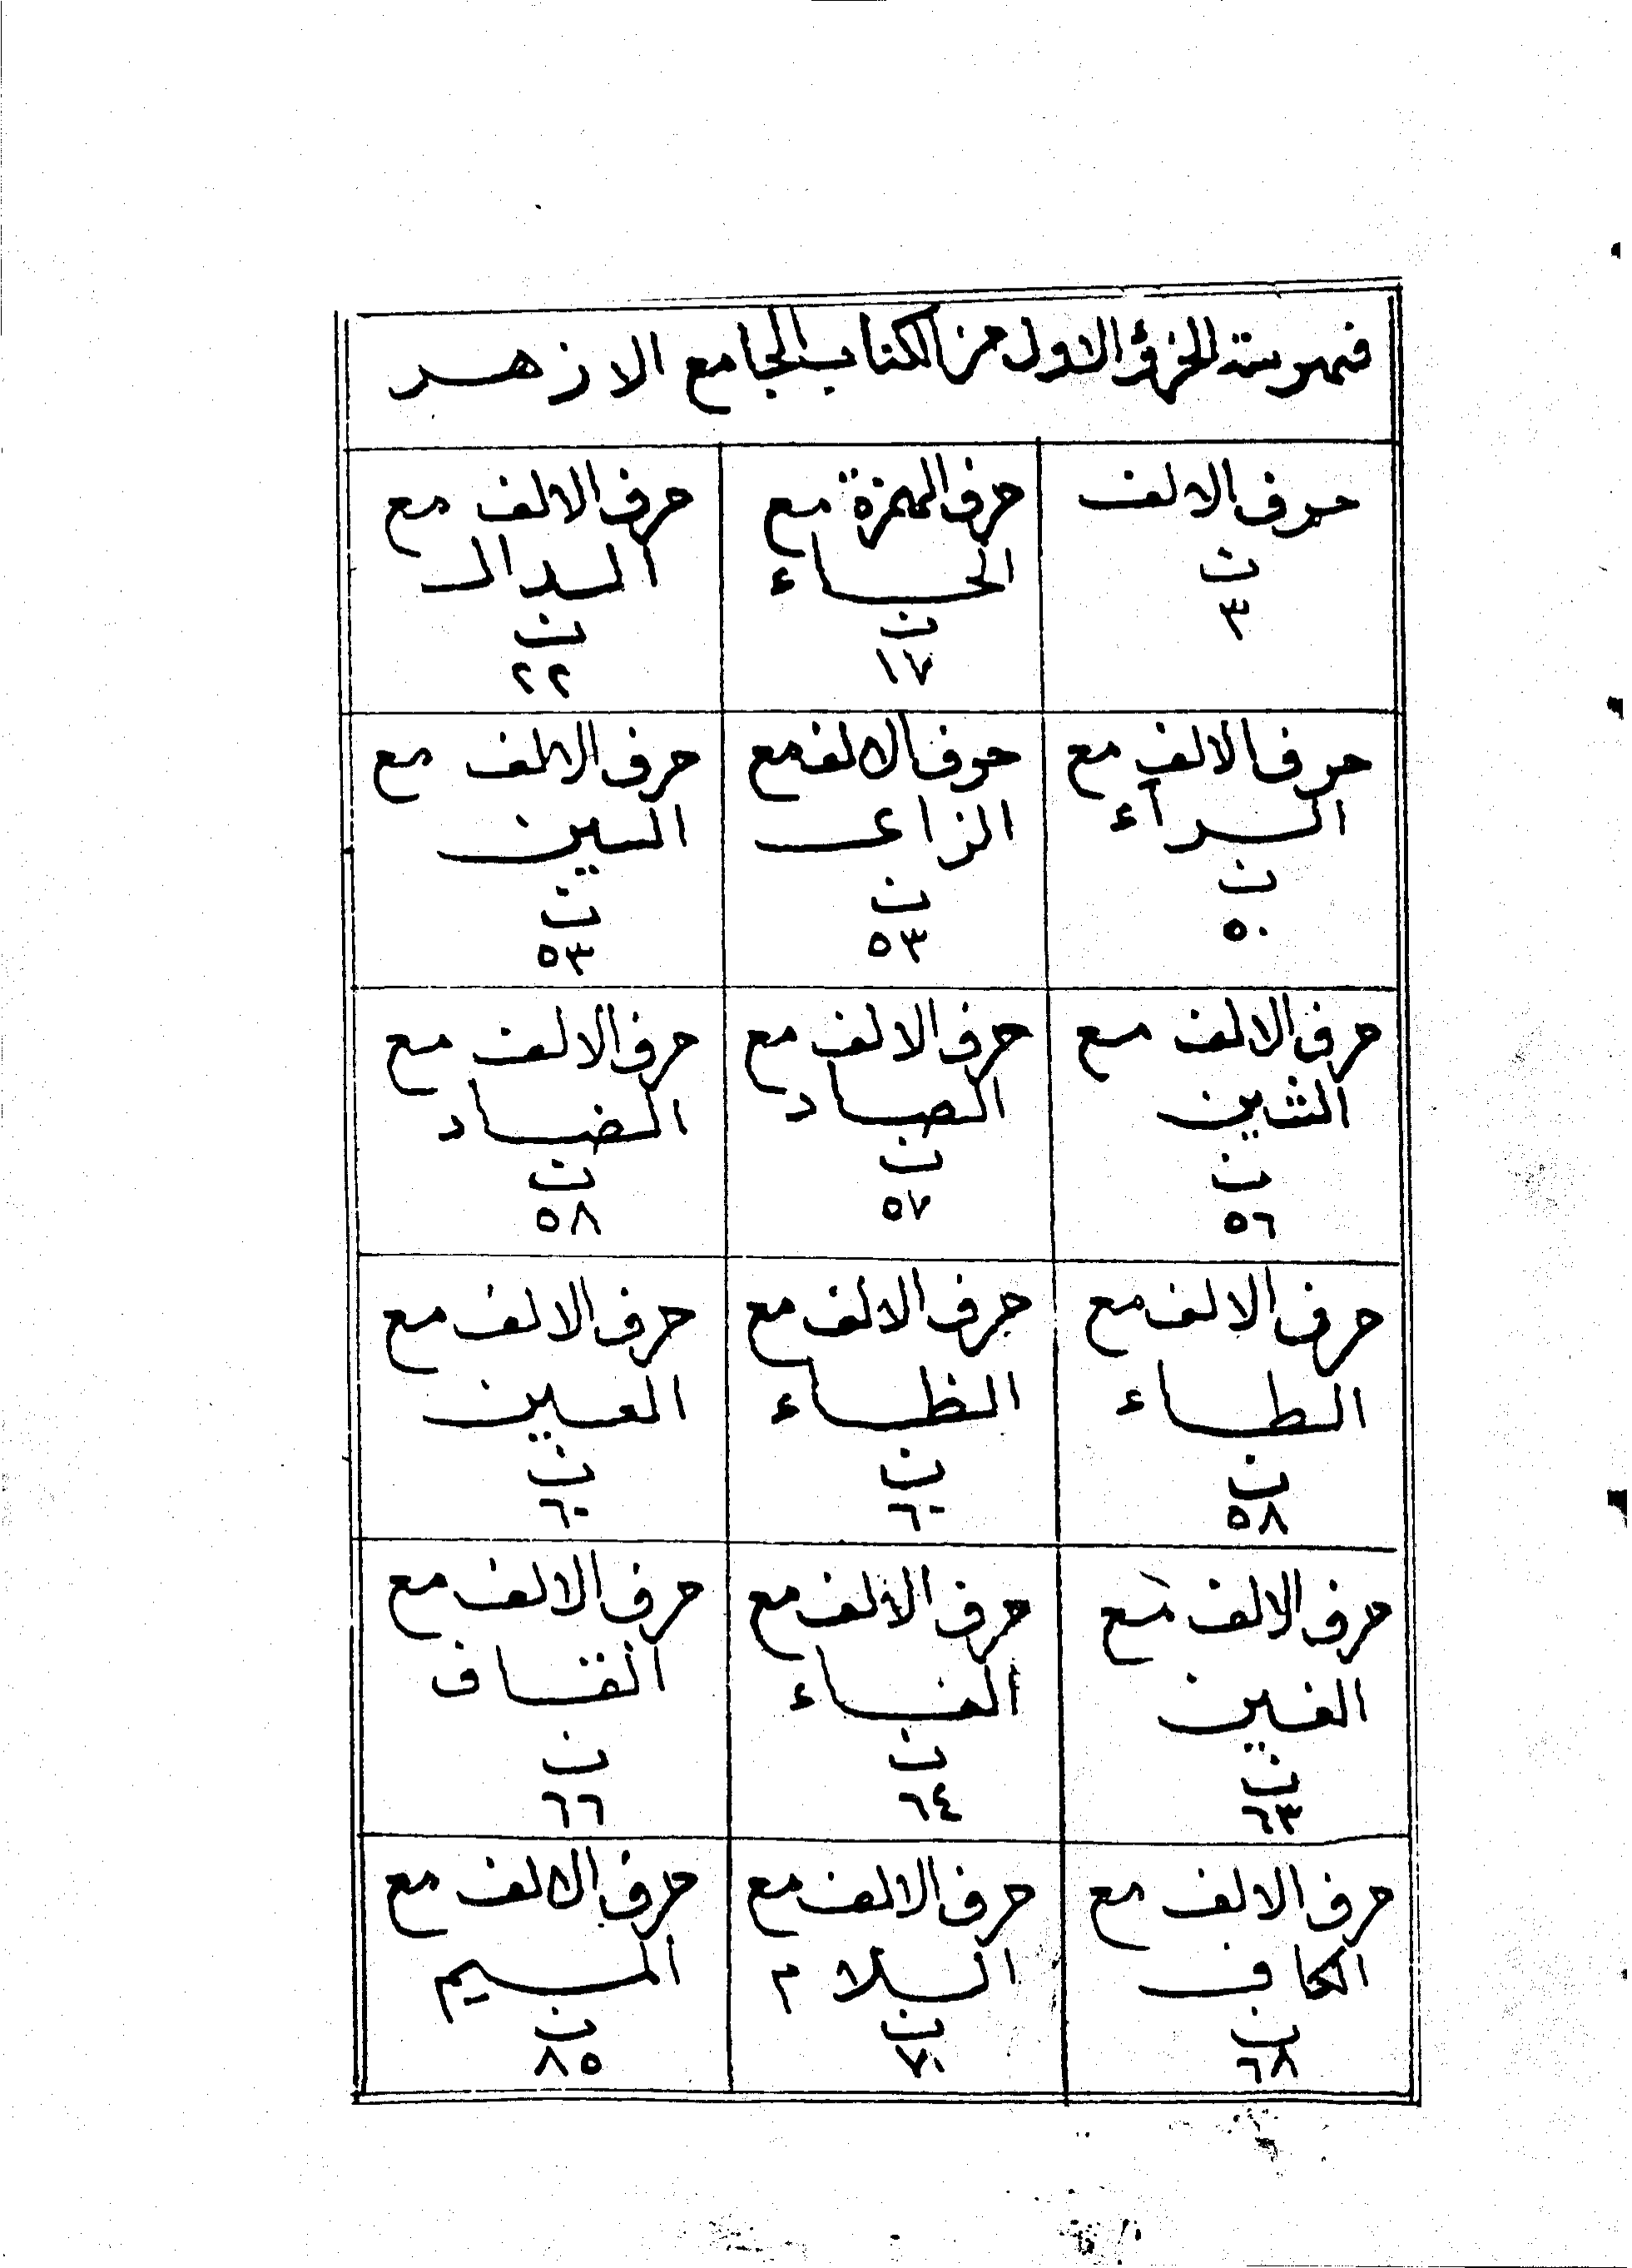 فهرسة الجزؤ الاول من الكتاب الجامع الازهر
حرف الالف
ن
٣
حرف الهمزة مع
الحاء
ن
١٧
حرف الالف مع
الدال
ن
٢٢
حرف الالف مع
الرآء
ن
٥٠
حرف الالف مع
الزاى
ن
٥٣
حرف الالف مع
السين
ن
٥٣
حرف الالف مع
الشين
ن
٥٦
حرف الالف مع
الصاد
ن
٥٧
حرف الالف مع
الضاد
ن
٥٨
حرف الالف مع
الطاء
ن
٥٨
حرف الالف مع
الظاء
ن
٦٠
حرف الالف مع
العين
ن
٦٠
حرف الالف مع
الغين
ن
٦٣
حرف الالف مع
الفاء
ن
٦٤
حرف الالف مع
القاف
ن
٦٦
حرف الالف مع
الكاف
ن
٦٨
حرف الالف مع
اللام
ن
٧٠
حرف الالف مع
الميم
ن
٨٥